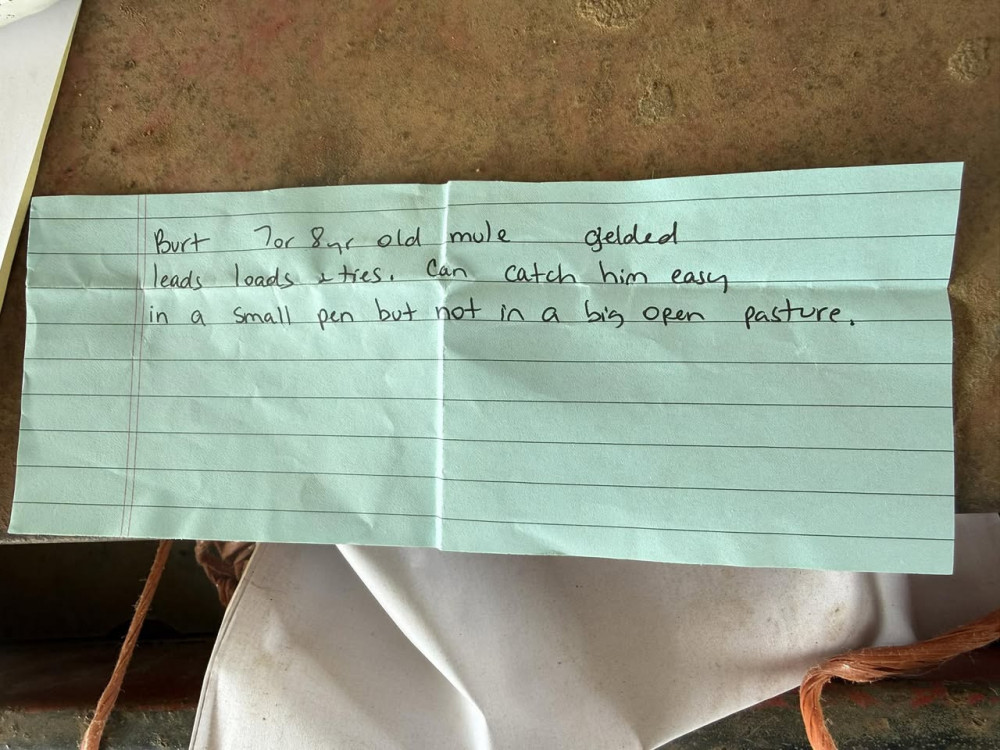 Burt 7or 8yr old mule gelded
leads loads & ties. Can catch him easy
in a small pen but not in a big open pasture.